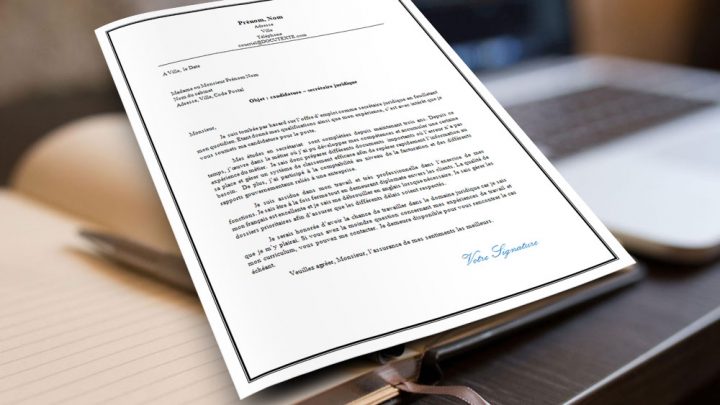 Prénom, Nom
Adresse
Ville
Téléphone
courriel@DOCUTEXTE.com
A Ville, le Date
Madame ou Monsieur Prénom Nom
Nom du cabinet
Adresse, Ville, Code Postal
Objet : candidature – secrétaire juridique
Monsieur,
Je suis tombée par hasard sur l'offre d'emploi comme secrétaire juridique en feuilletant
mon quotidien. Étant donné mes qualifications ainsi que mon expérience, c'est avec intérêt que je
vous soumets ma candidature pour le poste.
Mes études en secrétariat sont complétées depuis maintenant trois ans. Depuis ce
temps, j'œuvre dans le métier où j'ai pu développer mes compétences et accumuler une certaine
expérience du métier. Je sais donc préparer différents documents importants où l'erreur n'a pas
sa place et gérer un système de classement efficace afin de repérer rapidement l'information au
besoin. De plus, j'ai participé à la comptabilité au niveau de la facturation et des différents
rapports gouvernementaux reliés à une entreprise.
Je suis assidue dans mon travail et très professionnelle dans l'exercice de mes
fonctions. Je sais être à la fois ferme tout en demeurant diplomate envers les clients. La qualité de
mon français est excellente et je sais me débrouiller en anglais lorsque nécessaire. Je sais gérer les
dossiers prioritaires afin d'assurer que les différents délais soient respectés.
Je serais honorée d'avoir la chance de travailler dans le domaine juridique car je sais
que je m'y plairai. Si vous avez la moindre question concernant mes expériences de travail et
mon curriculum, vous pouvez me contacter. Je demeure disponible pour vous rencontrer le cas
échéant.
Veuillez agréer, Monsieur, l'assurance de mes sentiments les meilleurs.
Votre Signature